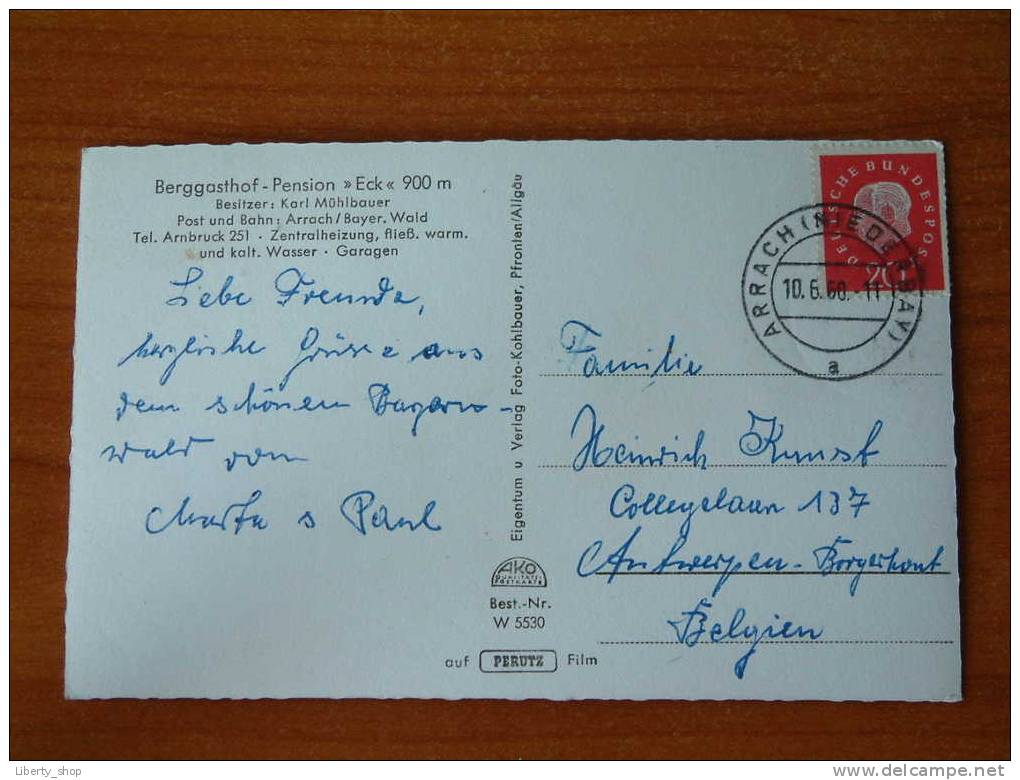 Berggasthof - Pension »Eck« 900 m
Besitzer: Karl Mühlbauer
Post und Bahn: Arrach/Bayer. Wald
Tel. Arnbruck 251 · Zentralheizung, fließ. warm.
und kalt. Wasser · Garagen
Liebe Freunde,
herzliche Grüsse aus
dem schönen Bayern-
wald von
Marta & Paul
Eigentum u Verlag Foto-Kohlbauer, Pfronten/Allgäu
AKO
QUALITÄTS
POSTKARTE
Best.-Nr.
W 5530
auf PERUTZ Film
DEUTSCHE BUNDESPOST
20
ARRACH (NIEDERBAY)
10.6.60.-11
a
Familie
Heinrich Kunst
Collegelaan 137
Antwerpen-Borgerhout
Belgien
Liberty_shop
delcampe.net